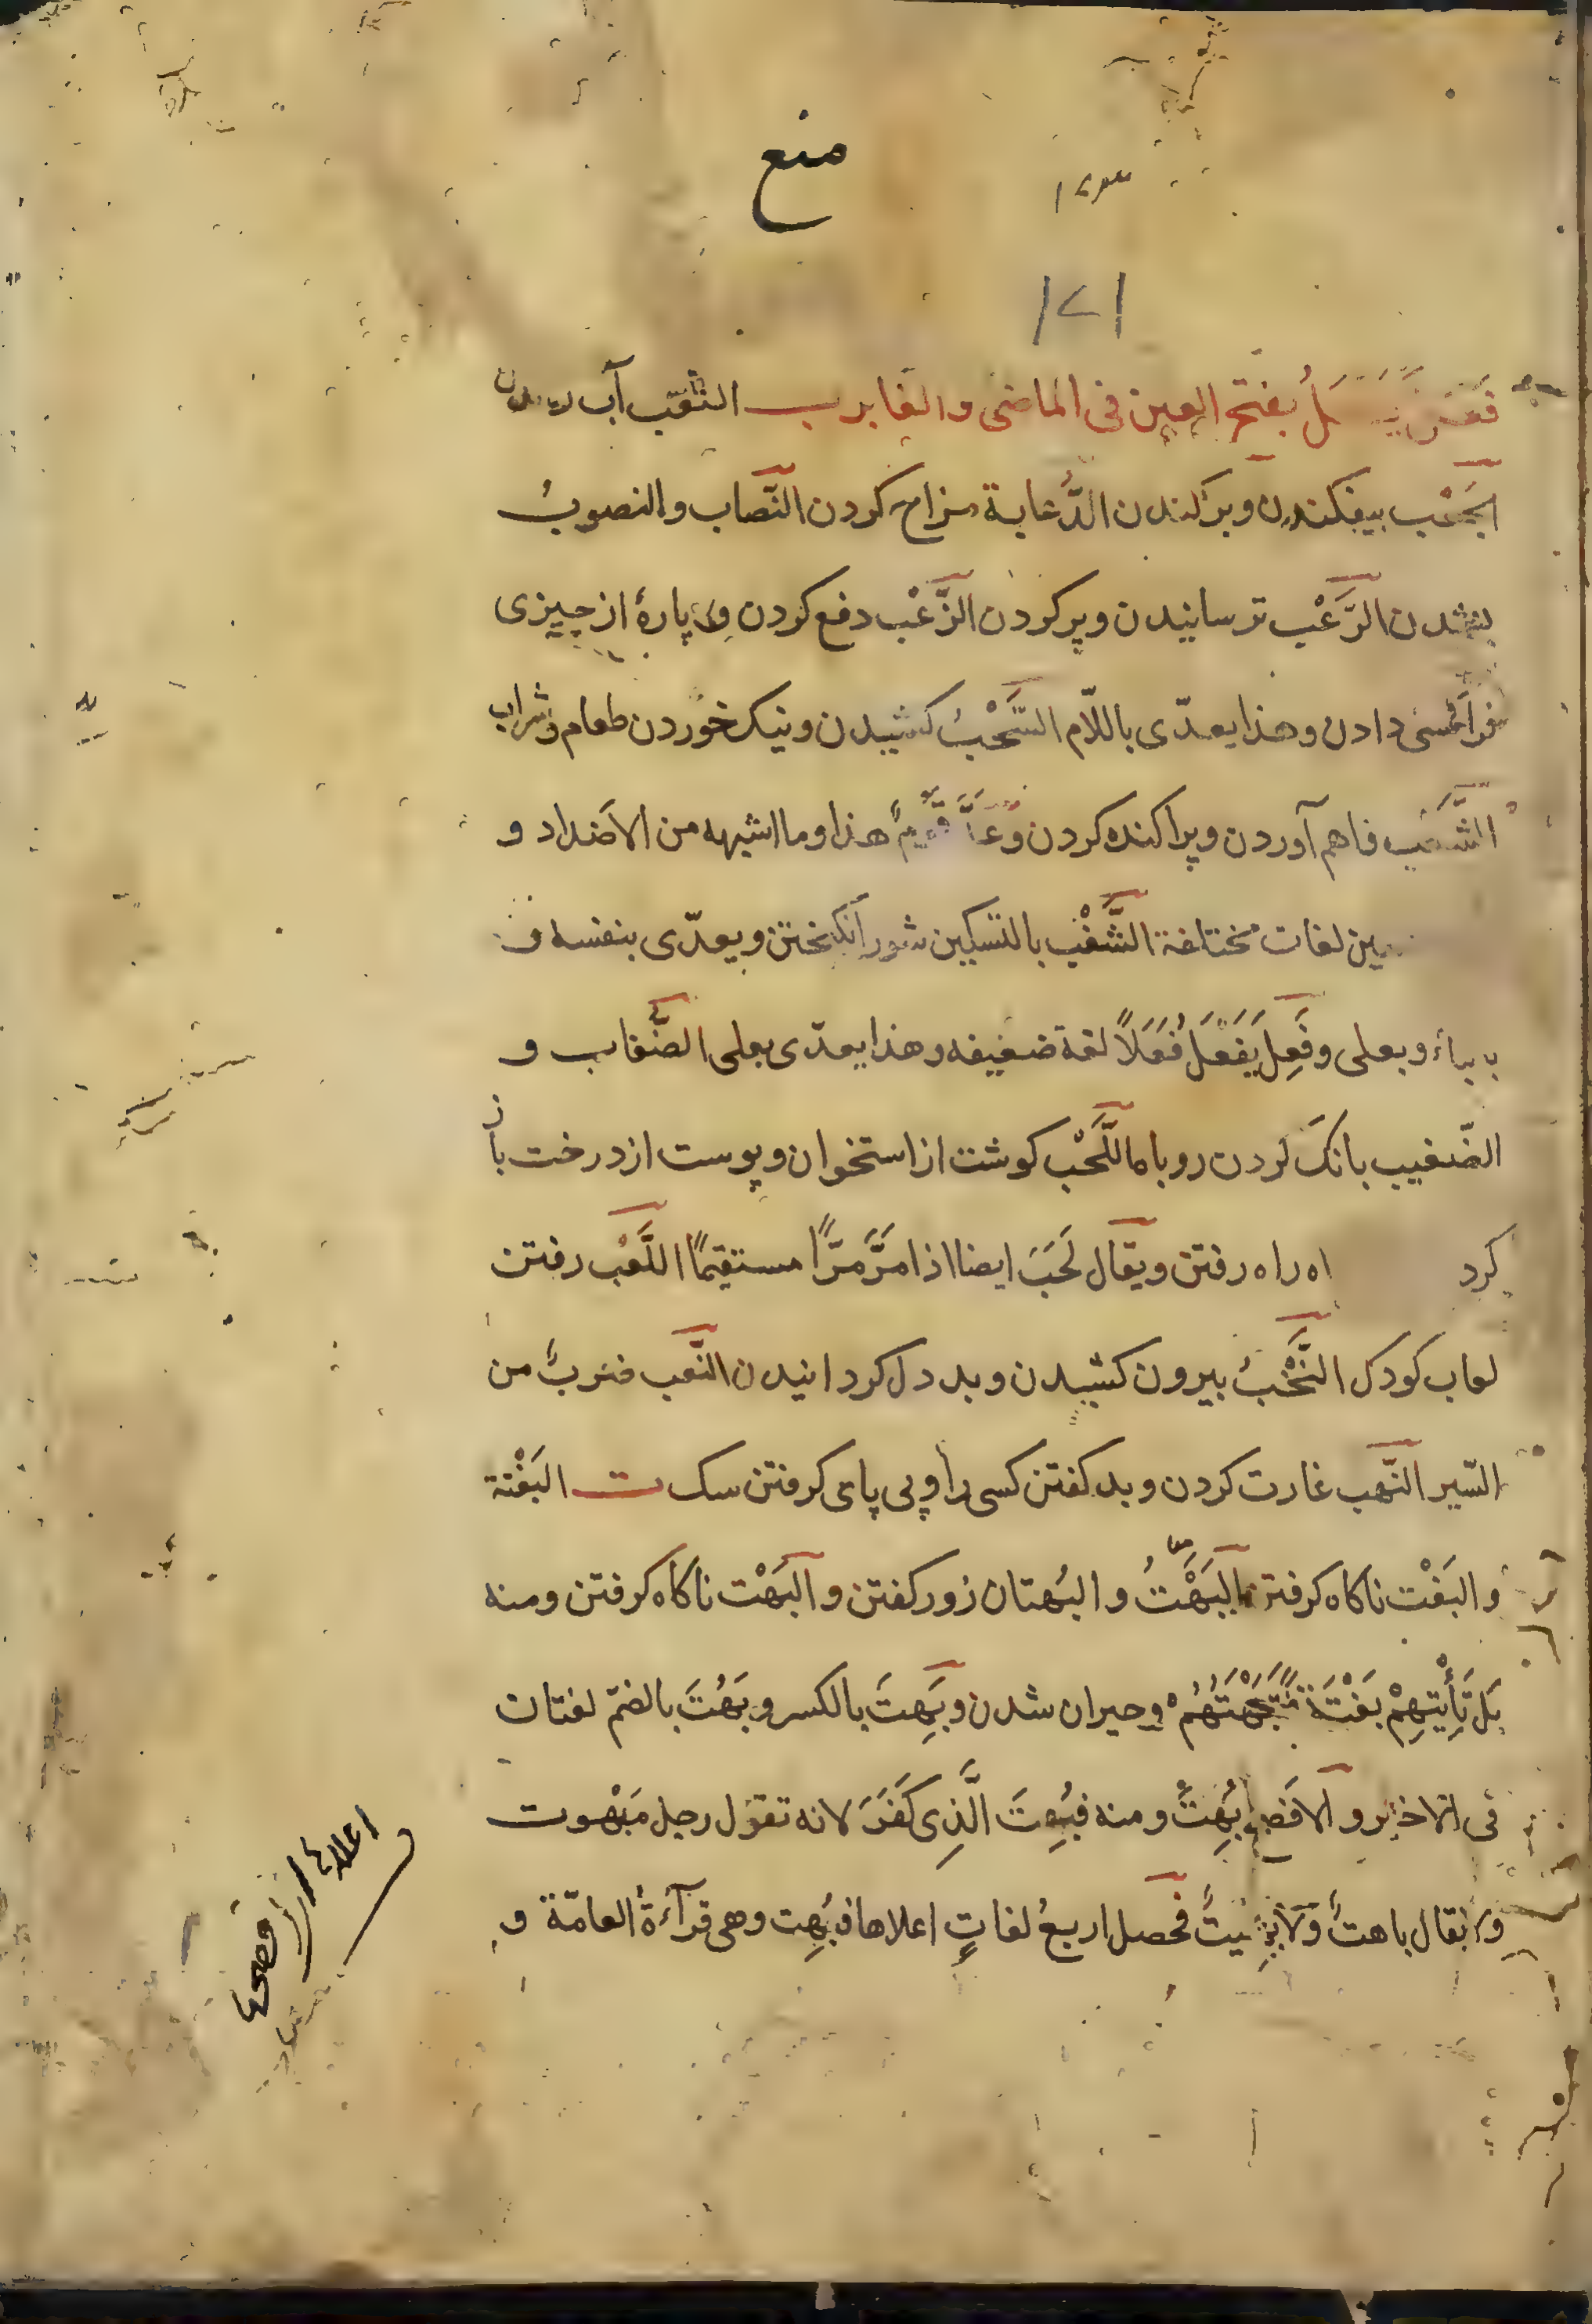 منع
١٧١
فَعَلَ يَفْعَلُ بفتح العين فى الماضى والغابر ب الثَعْب آب
الجَعْب بيفكندن وبركندن الدُّعابة مزاح كردن النّصاب والنصوبُ
بنشدن الرَّعْب ترسانيدن وپر كردن الزَّعْب دفع كردن و پارهٔ از چيزى
فرا كسى دادن وهذا يعدّى باللّام السَّحْبُ كشيدن ونيك خوردن طعام وشراب
الشَّعْب فاهم آوردن وپراكنده كردن وعدَّ قومٌ هذا وما اشبهه من الاضداد و
لغات مختلفة الشَّغْب بالتسكين شور انكيختن ويعدّى بنفسه و
بباء وبعلى وفَعِلَ يَفْعَلُ فَعَلاً لغة ضعيفه وهذا يعدّى بعلى الضُّغاب و
الضّغيب بانك كردن روباه اللَّحْب كوشت از استخوان وپوست از درخت باز
كرد راه رفتن ويقال لَحَبَ ايضا اذا مَرَّ مَرًّا مستقيمًا اللَّعْب رفتن
لعاب كودك النَّخْبُ بيرون كشيدن وبد دل كردانيدن النّعب ضربٌ من
السّير النّهب غارت كردن وبد كفتن كسى را وپى پاى كرفتن سك ت البَغْتة
و البَغْت ناكاه كرفتن البَهْتُ و البُهتان زور كفتن و البَهْت ناكاه كرفتن ومنه
بَلْ تَأْتِيهِمْ بَغْتَةً فَتَبْهَتُهُمْ وحيران شدن وبَهِتَ بالكسر وبَهُتَ بالضمّ لغتان
فى الاخير و الافصح بُهِتَ ومنه فبُهِتَ الَّذِى كَفَرَ لانه تقول رجل مَبْهوت
ولا يقال باهتٌ ولا بَهيتٌ فحصل اربعُ لغاتٍ اعلاها فبُهِت وهى قرآءةُ العامّة و